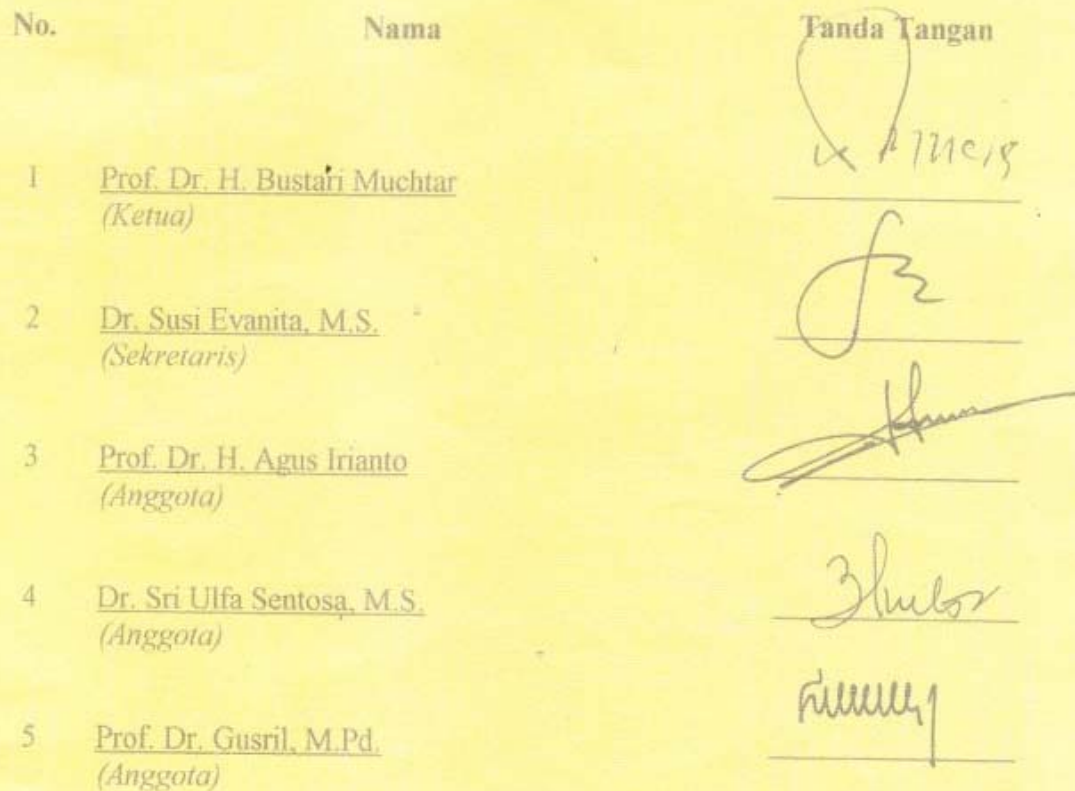 No. Nama Tanda Tangan
1 Prof. Dr. H. Bustari Muchtar
(Ketua)
2 Dr. Susi Evanita, M.S.
(Sekretaris)
3 Prof. Dr. H. Agus Irianto
(Anggota)
4 Dr. Sri Ulfa Sentosa, M.S.
(Anggota)
5 Prof. Dr. Gusril, M.Pd.
(Anggota)